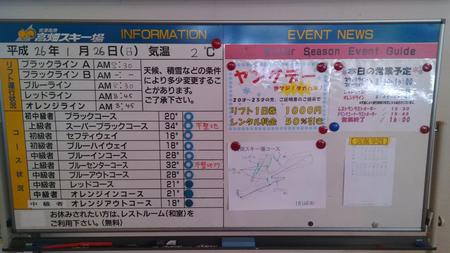 会津高原
高畑スキー場
INFORMATION
EVENT NEWS
平成26年1月26日(日) 気温 2℃
Winter Season Event Guide
リフト運行状況
ブラックライン A AM 8:30
ブラックライン B AM
ブルーライン AM 8:30
レッドライン AM 8:45
オレンジライン AM 8:45
天候、積雪などの条件
により多少変更すること
があります。
ご了承下さい。
コース状況
初中級者 ブラックコース 20°
上級者 スーパーブラックコース 34° 不整地
初級者 セフティウェイ 18°
初級者 ブルーハイウェイ 18°
中級者 ブルーインコース 28°
上級者 ブルーセンターコース 32°
中級者 ブルーアウトコース 28°
中級者 レッドコース 21°
中級者 オレンジインコース 21°
中級者 オレンジアウトコース 18°
お休みされたい方は、レストルーム(和室)を
ご利用下さい。(無料)
ヤングデー
リフト1日券 1000円
レンタル料金 50%
日の営業予定
営業終了